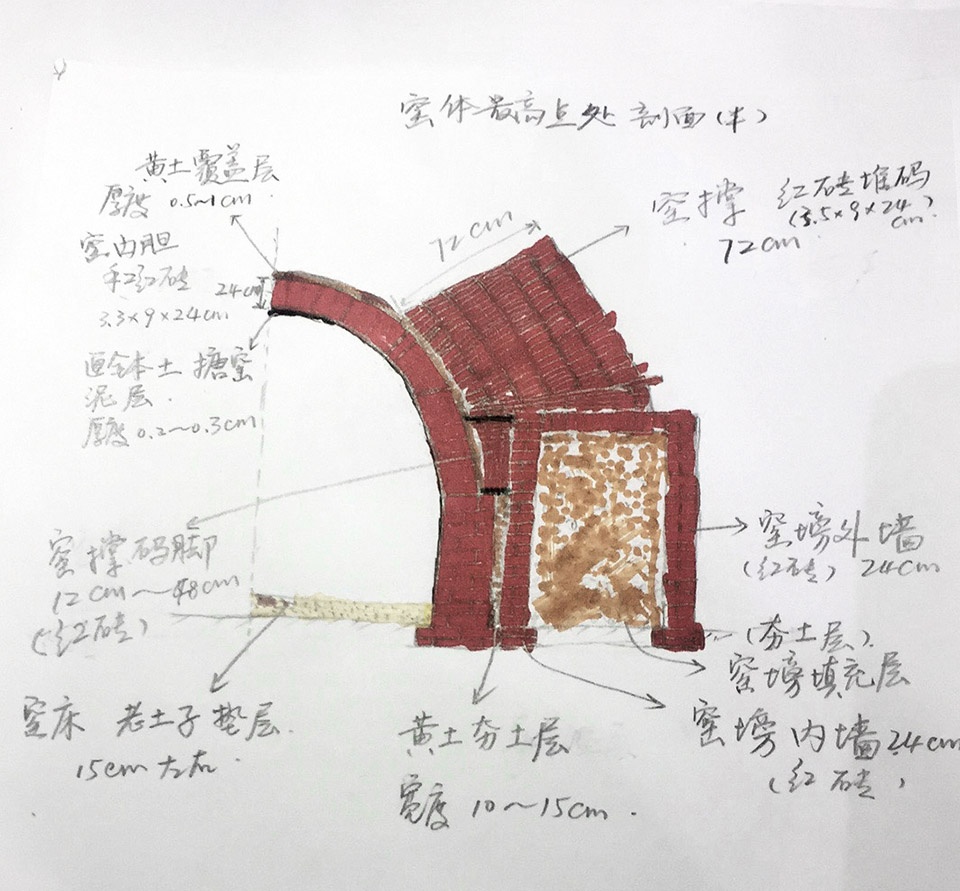 窑体最高点处剖面(半)
黄土覆盖层
厚度 0.5~1cm
窑内胆
红砖
3.3×9×24cm
24cm
本土搪窑
泥层.
厚度 0.2~0.3cm
72cm
窑撑 红砖堆码
(3.5×9×24cm)
72cm
窑撑码脚
12cm~48cm
(红砖)
窑床 老土子垫层.
15cm左右.
黄土夯土层
宽度 10~15cm.
窑塝外墙
(红砖) 24cm
(夯土层).
窑塝填充层
窑塝内墙 24cm
(红砖)